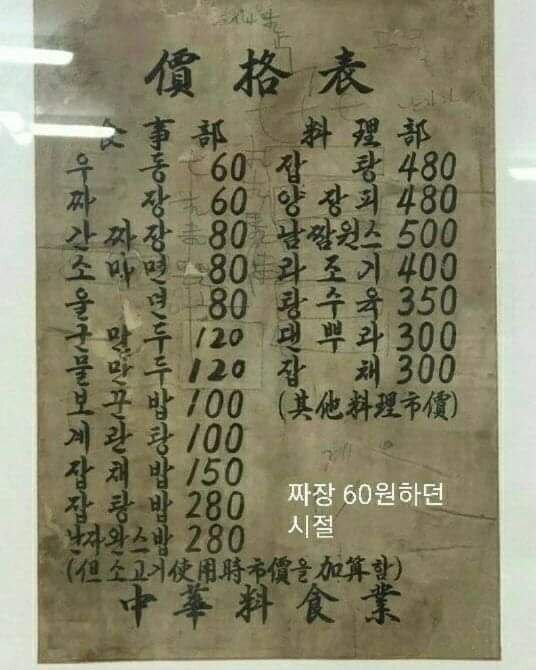 價格表
食事部
우동 60
짜장 60
간짜장 80
소마면 80
울면 80
군만두 120
물만두 120
보끈밥 100
계란탕 100
잡채밥 150
잡탕밥 280
난자완스밥 280
(但소고기使用時市價을加算함)
料理部
잡탕 480
양장피 480
남짬원스 500
과조기 400
탕수육 350
댄뿌라 300
잡채 300
(其他料理市價)
짜장 60원하던
시절
中華料食業